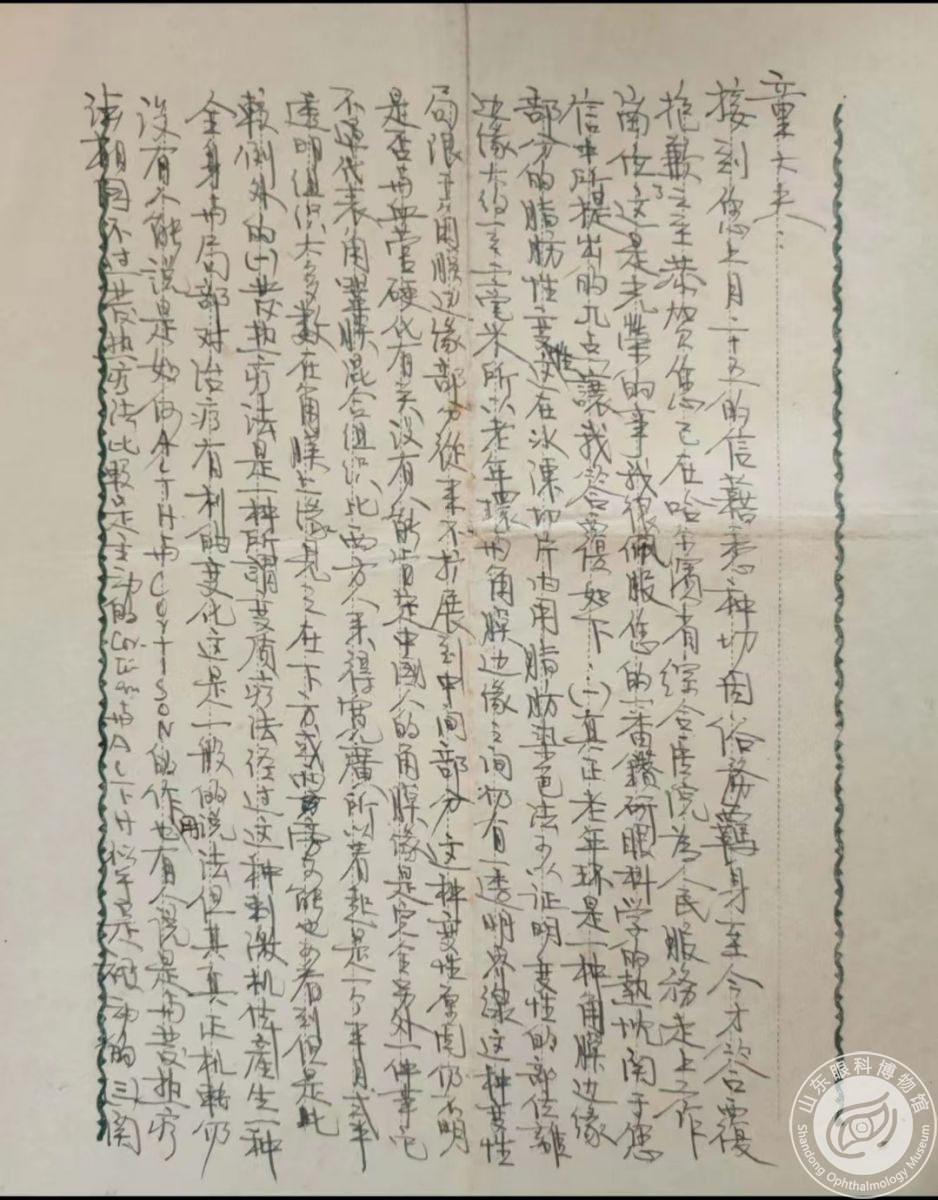 童大夫:
接到您上月二十五的信藉悉种切因俗務羈身至今才答覆
抱歉之至恭賀您已在哈尔濱省综合医院为人民服務走上了工作
崗位这是光榮的事我很佩服您的一番鑽研眼科学的熱忱関于您
信中所提出的几点讓我答覆如下(一)真正老年环是一种角膜边缘
部分的脂肪性变性在冰凍切片内用脂肪染色法可以证明变性的部位離
边缘大约一毫米所以老年環与角膜边缘之间仍有一透明界線这种变性
局限于角膜边缘部分從来不扩展到中间部分这种变性原因仍不明
是否与血管硬化有关没有人能肯定中國人的角膜缘是完全另外一件事它
不过代表角鞏膜混合组织比西方人来得寬廣所以看起是一个半月或半
透明组织大多数在角膜上缘見之在下方或也可能看到但是此
較例外的(二)发热疗法是一种所謂变质疗法经过这种刺激机体產生一种
全身与局部对治疗有利的变化这是一般的说法但其真正机轉仍
没有人能说是如何ACTH与CORTISON的作用也有人说是与发热疗
法相同不过发热疗法比較是主动的Cortison与ACTH似乎是被动的(三)関
山东眼科博物馆
Shandong Ophthalmology Museum